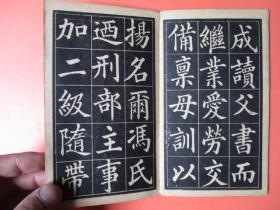 成讀父書而
繼業愛勞交
備稟母訓以
揚名爾馮氏
迺刑部主事
加二級隨帶